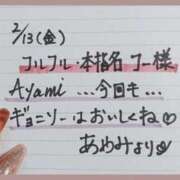 2/13(金)
フルフル・本指名 コー様
Ayami ...今回も...
ギョニソーはおいしくね♡
あめみより